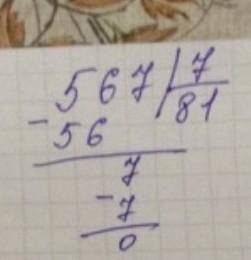 567|7
-56 81
7
-7
0